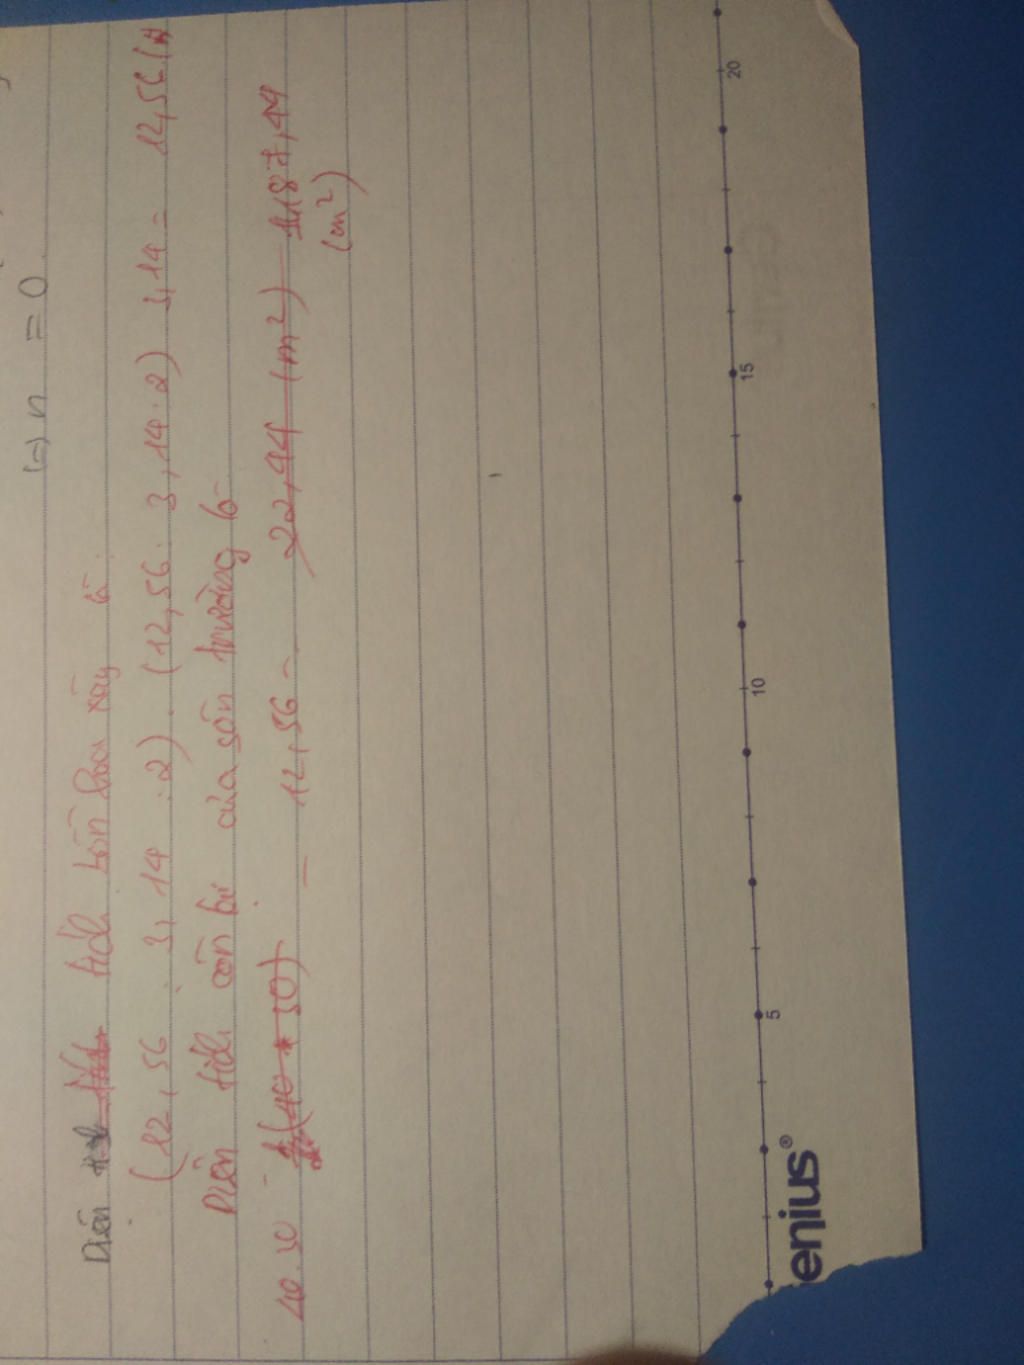 (=) n = 0
Diện tích bồn hoa này là
(12,56 : 3,14 : 2) . (12,56 : 3,14 : 2) 3,14 = 12,56 (
Diện tích còn lại của sân trường là
40.30 - (40 + 30) - 12,56 = 22,44 (m²) 1187,44
(m²)
5 10 15 20
enius®